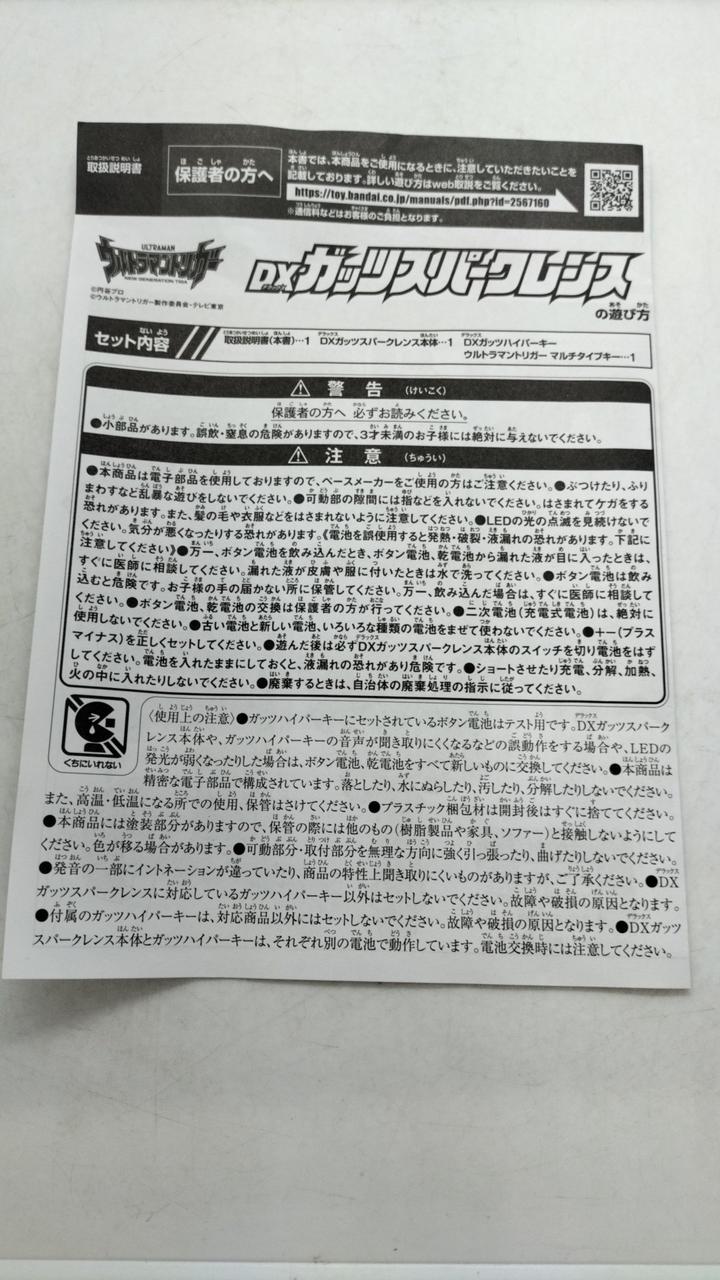 取扱説明書
保護者の方へ
本書では、本商品をご使用になるときに、注意していただきたいことを
記載しております。詳しい遊び方はweb取説をご覧ください。
https://toy.bandai.co.jp/manuals/pdf.php?id=2567160
※通信料などはお客様のご負担となります。
ULTRAMAN
ウルトラマントリガー
NEW GENERATION TIGA
©円谷プロ
©ウルトラマントリガー製作委員会・テレビ東京
DXガッツスパークレンス
の遊び方
セット内容
取扱説明書(本書)…1 DXガッツスパークレンス本体…1 DXガッツハイパーキー
ウルトラマントリガー マルチタイプキー…1
警告(けいこく)
保護者の方へ 必ずお読みください。
●小部品があります。誤飲・窒息の危険がありますので、3才未満のお子様には絶対に与えないでください。
注意(ちゅうい)
●本商品は電子部品を使用しておりますので、ペースメーカーをご使用の方はご注意ください。●ぶつけたり、ふり
まわすなど乱暴な遊びをしないでください。●可動部の隙間には指などを入れないでください。はさまれてケガをする
恐れがあります。また、髪の毛や衣服などをはさまれないように注意してください。●LEDの光の点滅を見続けないで
ください。気分が悪くなったりする恐れがあります。《電池を誤使用すると発熱・破裂・液漏れの恐れがあります。下記に
注意してください》●万一、ボタン電池を飲み込んだとき、ボタン電池、乾電池から漏れた液が目に入ったときは、
すぐに医師に相談してください。漏れた液が皮膚や服に付いたときは水で洗ってください。●ボタン電池は飲み
込むと危険です。お子様の手の届かない所に保管してください。万一、飲み込んだ場合は、すぐに医師に相談して
ください。●ボタン電池、乾電池の交換は保護者の方が行ってください。●二次電池(充電式電池)は、絶対に
使用しないでください。●古い電池と新しい電池、いろいろな種類の電池をまぜて使わないでください。●+-(プラス
マイナス)を正しくセットしてください。●遊んだ後は必ずDXガッツスパークレンス本体のスイッチを切り電池をはず
してください。電池を入れたままにしておくと、液漏れの恐れがあり危険です。●ショートさせたり充電、分解、加熱、
火の中に入れたりしないでください。●廃棄するときは、自治体の廃棄処理の指示に従ってください。
くちにいれない
〈使用上の注意〉●ガッツハイパーキーにセットされているボタン電池はテスト用です。DXガッツスパーク
レンス本体や、ガッツハイパーキーの音声が聞き取りにくくなるなどの誤動作をする場合や、LEDの
発光が弱くなったりした場合は、ボタン電池、乾電池をすべて新しいものに交換してください。●本商品は
精密な電子部品で構成されています。落としたり、水にぬらしたり、汚したり、分解したりしないでください。
また、高温・低温になる所での使用、保管はさけてください。●プラスチック梱包材は開封後はすぐに捨ててください。
●本商品には塗装部分がありますので、保管の際には他のもの(樹脂製品や家具、ソファー)と接触しないようにして
ください。色が移る場合があります。●可動部分・取付部分を無理な方向に強く引っ張ったり、曲げたりしないでください。
●発音の一部にイントネーションが違っていたり、商品の特性上聞き取りにくいものがありますが、ご了承ください。●DX
ガッツスパークレンスに対応しているガッツハイパーキー以外はセットしないでください。故障や破損の原因となります。
●付属のガッツハイパーキーは、対応商品以外にはセットしないでください。故障や破損の原因となります。●DXガッツ
スパークレンス本体とガッツハイパーキーは、それぞれ別の電池で動作しています。電池交換時には注意してください。